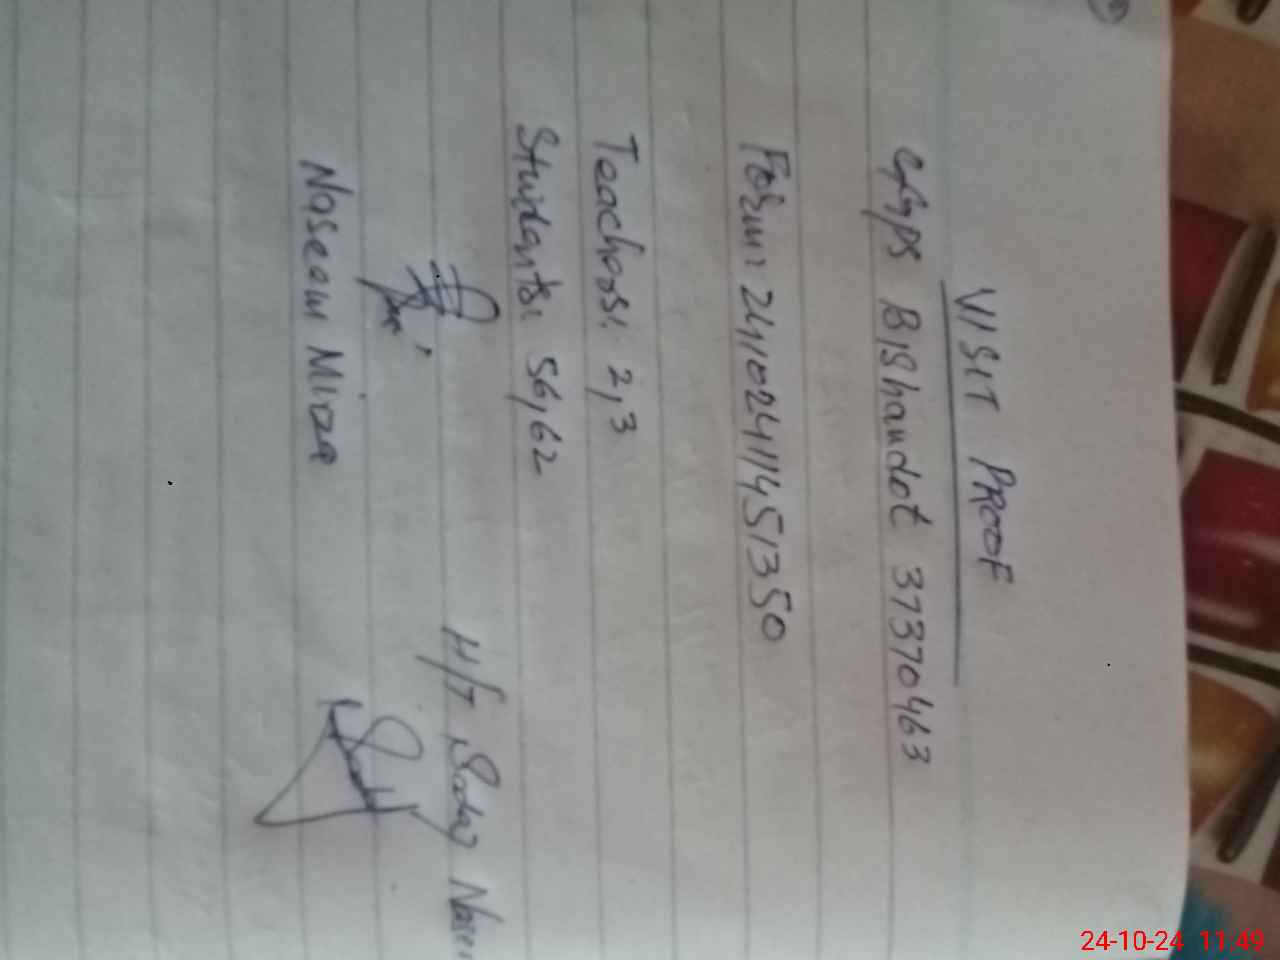 VISIT PROOF
GGPS Bishandot 37370463
Form: 24102411451350
Teachers: 2,3
Students: 56,62
H/T Sadaf
Naseem Mirza
24-10-24 11:49